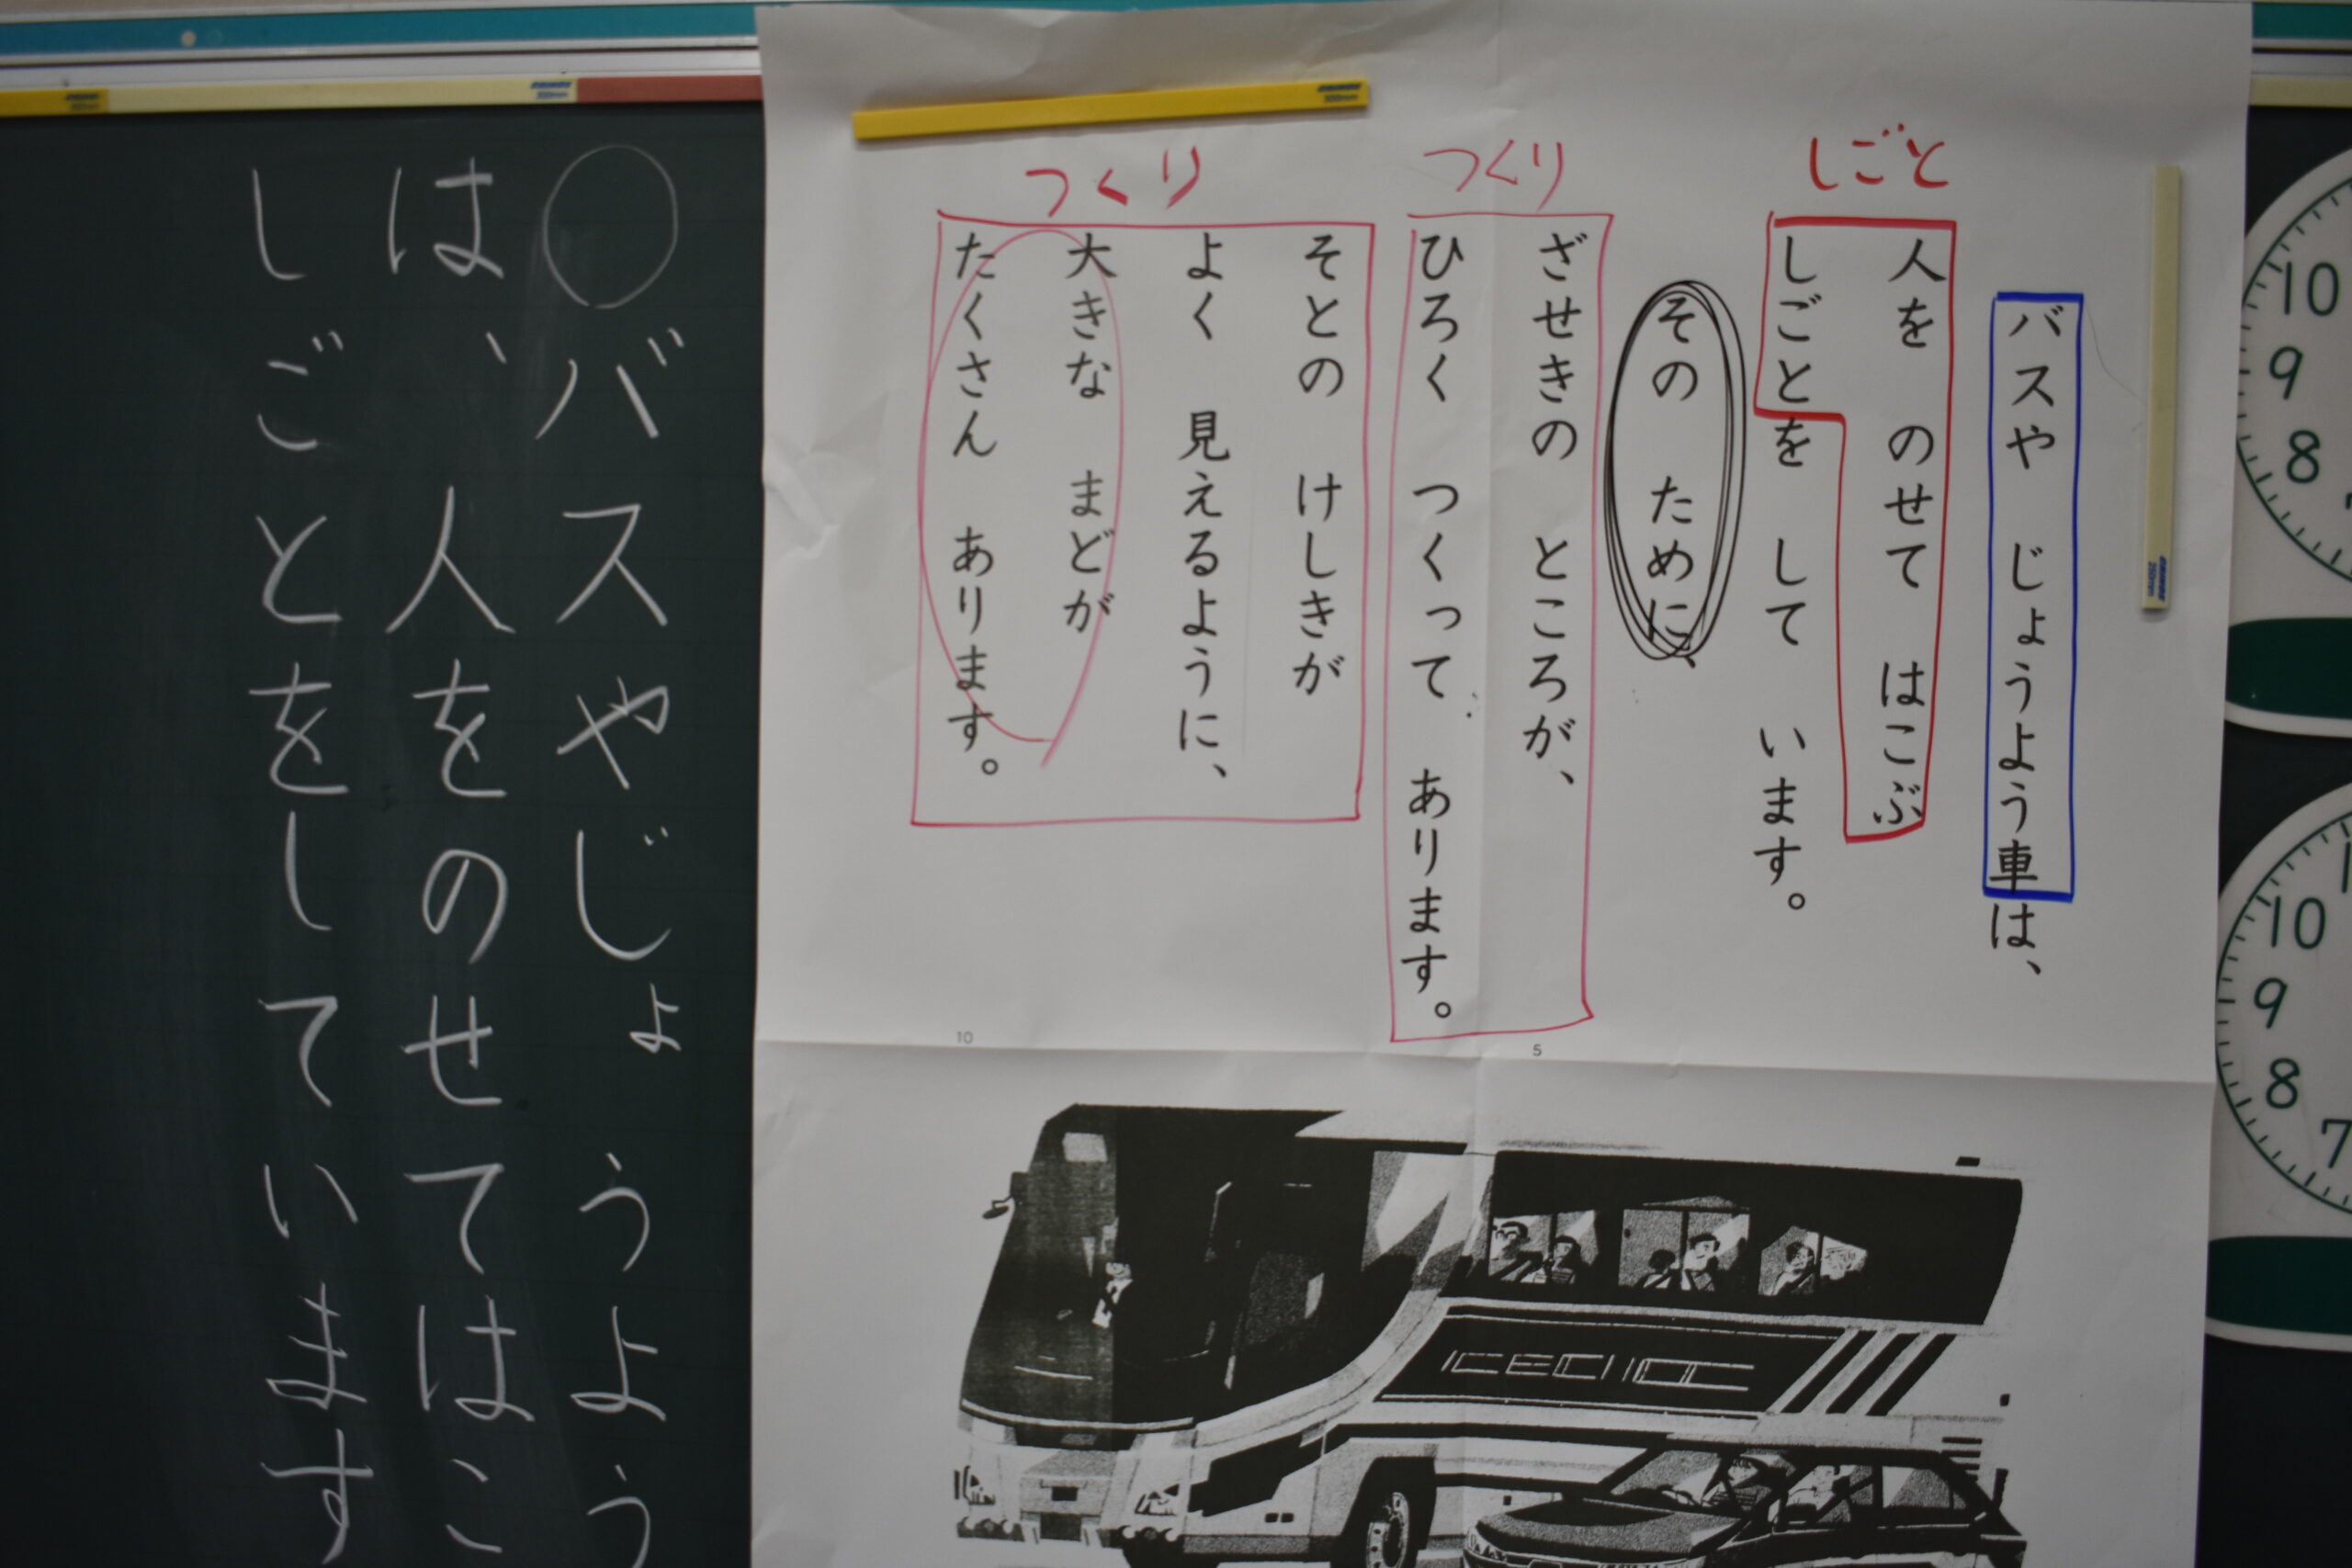 しごと
バスや じょうよう車は、
人を のせて はこぶ
しごとを して います。
その ために、
つくり
ざせきの ところが、
ひろく つくって あります。
つくり
そとの けしきが
よく 見えるように、
大きな まどが
たくさん あります。
5
10
○バスやじょうよう
は、人をのせてはこ
しごとをしています
10
9
8
10
9
8
7